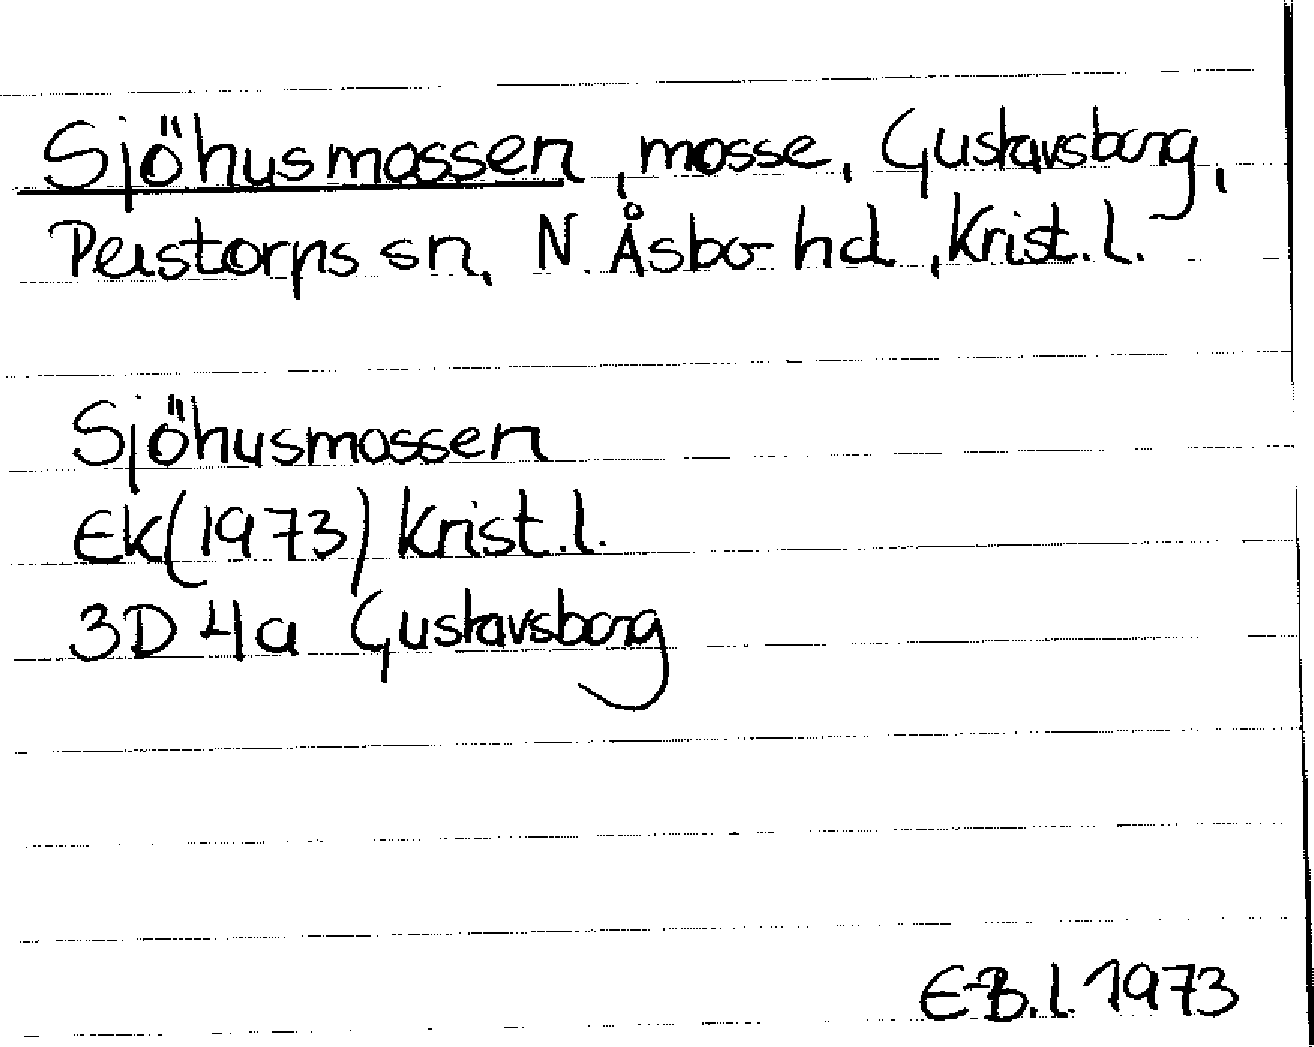 Sjöhusmossen, mosse, Gustavsborg,
Perstorps sn, N. Åsbo hd, Krist. l.
Sjöhusmossen
EK (1973) Krist. l.
3D 4a Gustavsborg
E-B. l. 1973